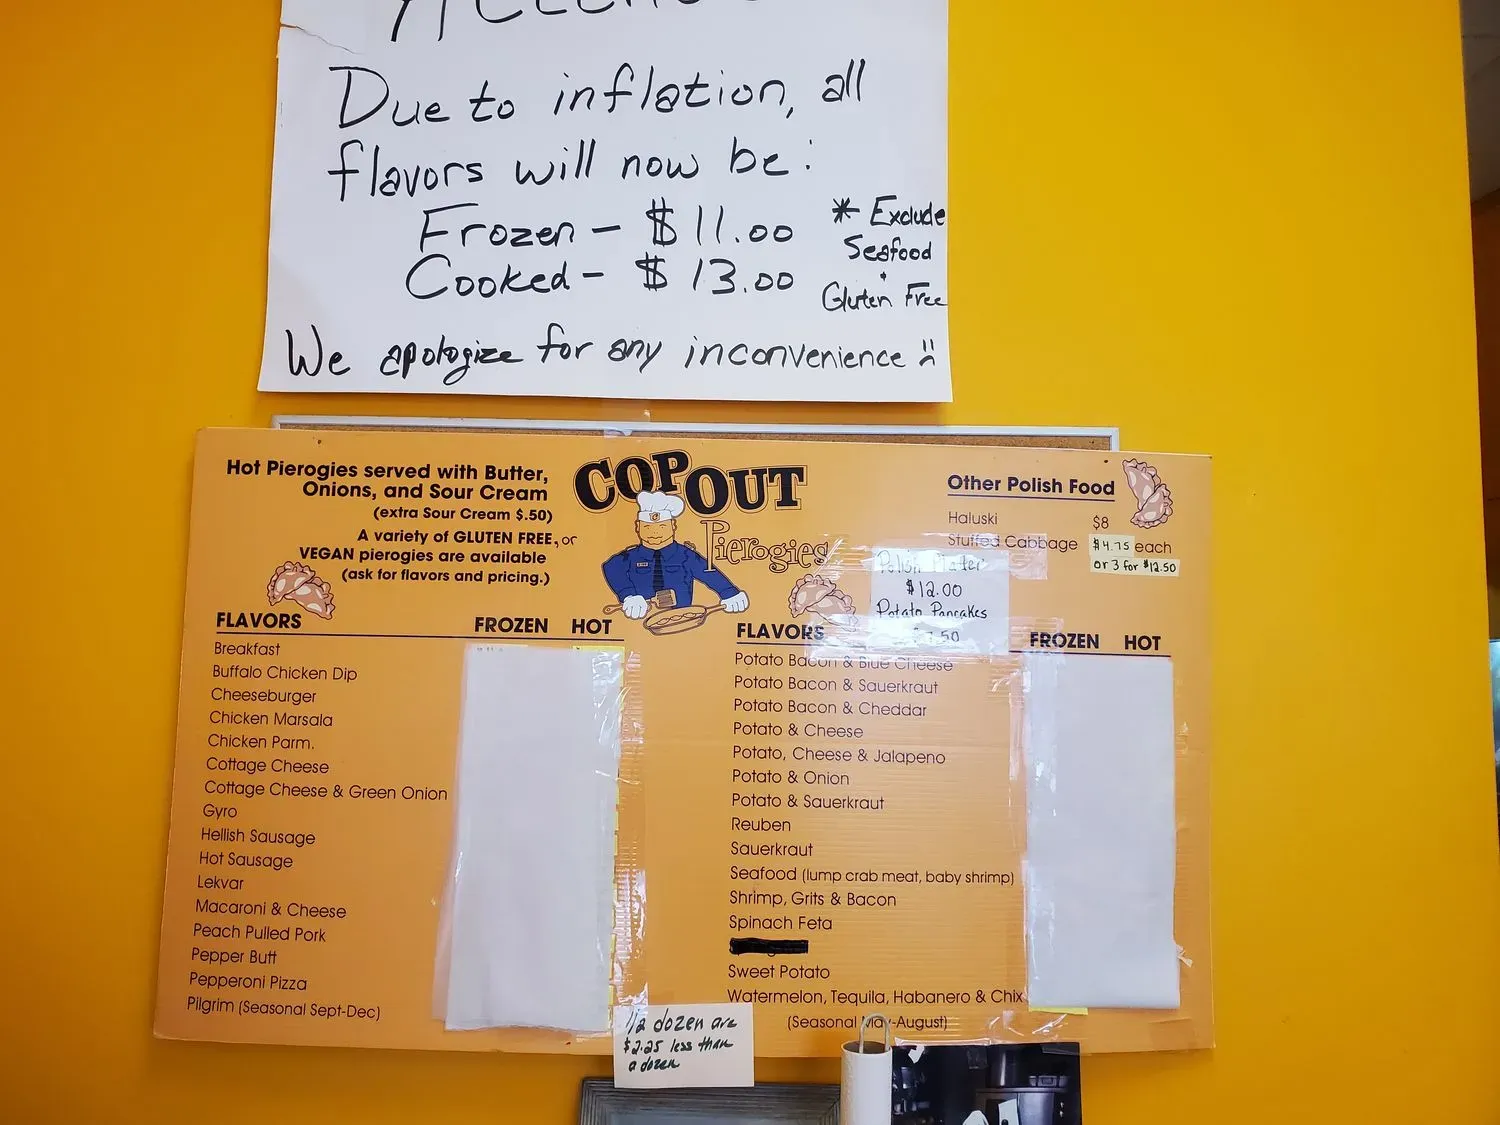 Due to inflation, all
flavors will now be:
Frozen - $11.00
Cooked - $13.00
* Exclude
Seafood
+
Gluten Free
We apologize for any inconvenience
Hot Pierogies served with Butter,
Onions, and Sour Cream
(extra Sour Cream $.50)
A variety of GLUTEN FREE, or
VEGAN pierogies are available
(ask for flavors and pricing.)
COP OUT
Pierogies
Other Polish Food
Haluski $8
Stuffed Cabbage $4.75 each
or 3 for $12.50
Polish Platter
$12.00
Potato Pancakes
.50
FLAVORS FROZEN HOT
Breakfast
Buffalo Chicken Dip
Cheeseburger
Chicken Marsala
Chicken Parm.
Cottage Cheese
Cottage Cheese & Green Onion
Gyro
Hellish Sausage
Hot Sausage
Lekvar
Macaroni & Cheese
Peach Pulled Pork
Pepper Butt
Pepperoni Pizza
Pilgrim (Seasonal Sept-Dec)
FLAVORS FROZEN HOT
Potato Bacon & Blue Cheese
Potato Bacon & Sauerkraut
Potato Bacon & Cheddar
Potato & Cheese
Potato, Cheese & Jalapeno
Potato & Onion
Potato & Sauerkraut
Reuben
Sauerkraut
Seafood (lump crab meat, baby shrimp)
Shrimp, Grits & Bacon
Spinach Feta
Sweet Potato
Watermelon, Tequila, Habanero & Chix
(Seasonal May-August)
1/2 dozen are
$2.25 less than
a dozen